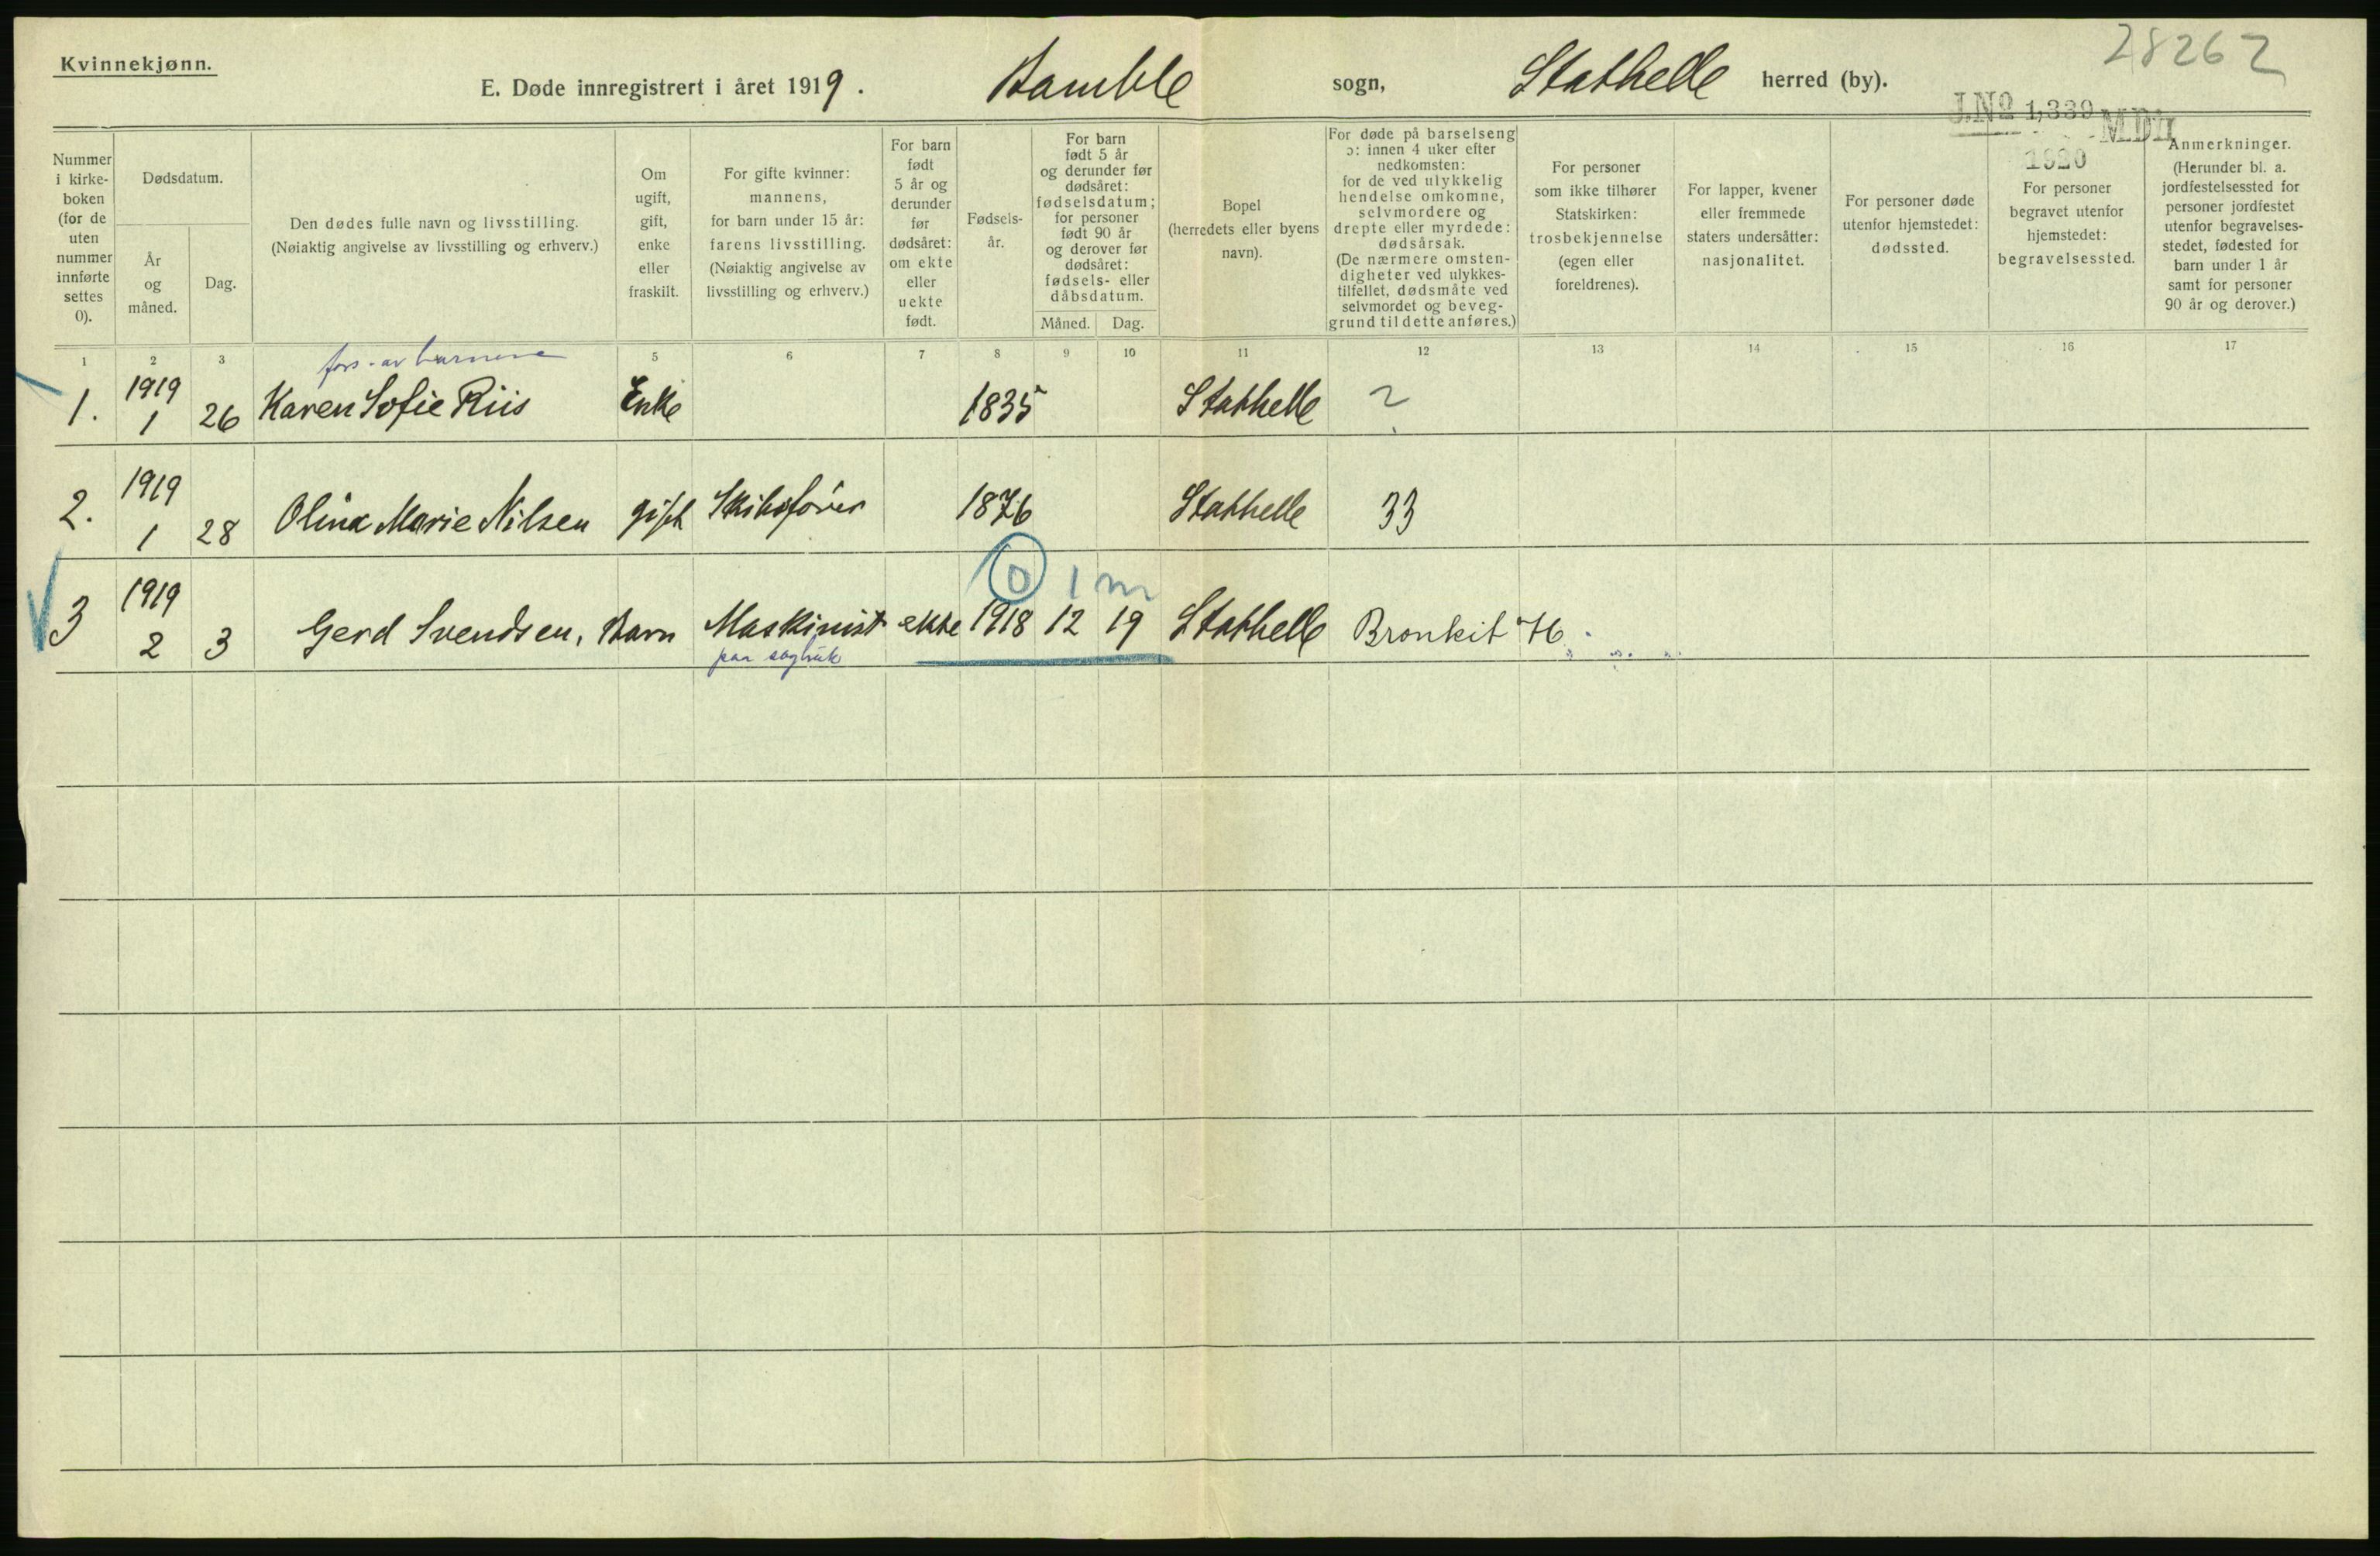 Kvinnekjønn.
28262
E. Døde innregistrert i året 1919. Bamble sogn, Stathelle herred (by).
J.Nº 1,339 MDH
1920
Nummer i kirke-boken (for de uten nummer innførte settes 0).
Dødsdatum.
År og måned.
Dag.
Den dødes fulle navn og livsstilling.
(Nøiaktig angivelse av livsstilling og erhverv.)
Om ugift, gift, enke eller fraskilt.
For gifte kvinner: mannens, for barn under 15 år: farens livsstilling. (Nøiaktig angivelse av livsstilling og erhverv.)
For barn født 5 år og derunder før dødsåret: om ekte eller uekte født.
Fødsels-år.
For barn født 5 år og derunder før dødsåret: fødselsdatum; for personer født 90 år og derover før dødsåret: fødsels- eller dåbsdatum.
Måned. Dag.
Bopel (herredets eller byens navn).
For døde på barselseng ɔ: innen 4 uker efter nedkomsten: for de ved ulykkelig hendelse omkomne, selvmordere og drepte eller myrdede: dødsårsak. (De nærmere omsten-digheter ved ulykkes-tilfellet, dødsmåte ved selvmordet og beveg-grund til dette anføres.)
For personer som ikke tilhører Statskirken: trosbekjennelse (egen eller foreldrenes).
For lapper, kvener eller fremmede staters undersåtter: nasjonalitet.
For personer døde utenfor hjemstedet: dødssted.
For personer begravet utenfor hjemstedet: begravelsessted.
Anmerkninger. (Herunder bl. a. jordfestelsessted for personer jordfestet utenfor begravelses-stedet, fødested for barn under 1 år samt for personer 90 år og derover.)
1 2 3 5 6 7 8 9 10 11 12 13 14 15 16 17
fors. av barnene
1. 1919 1 26 Karen Sofie Riis Enke 1835 Stathelle ?
2. 1919 1 28 Olina Marie Nilsen gift Skibsfører 1876 Stathelle 33
0 1 m
3 1919 2 3 Gerd Svendsen, Barn Maskinist ekte 1918 12 19 Stathelle Bronkit 46.
paa sagbruk